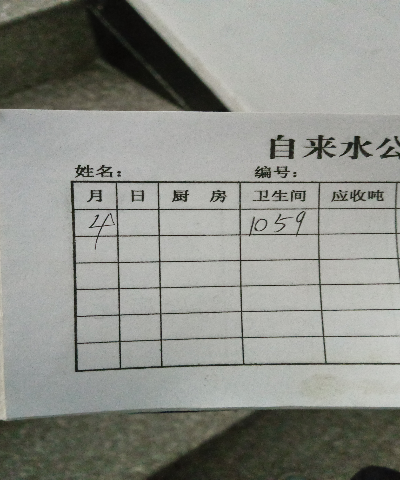 自来水公
姓名： 编号：
月 日 厨 房 卫生间 应收吨
4 1059